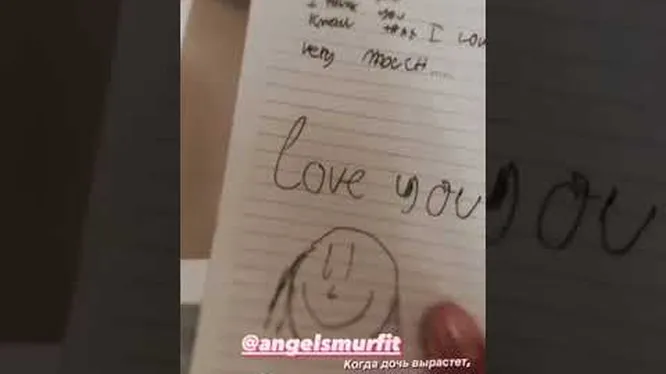 you
Know that I Lov
very mucch....
Love you
@angelsmurfit
Когда дочь вырастет,